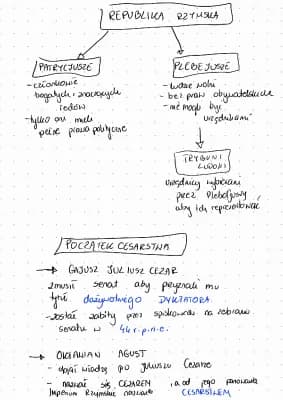 REPUBLIKA RZYMSKA
PATRYCJUSZE
- członkowie
bogatych i znaczących
rodów
- tylko oni mieli
pełne prawa polityczne
PLEBEJUSZE
- ludzie wolni
- bez praw obywatelskich
- nie mogli być
urzędnikami
TRYBUNI
LUDOWI
urzędnicy wybierani
przez Plebejuszy
aby ich reprezentować
POCZĄTEK CESARSTWA
→ GAJUSZ JULIUSZ CEZAR
zmusił senat aby przyznali mu
tytuł dożywotniego DYKTATORA.
- został zabity przez spiskowców na zebraniu
senatu w 44 r. p.n.e.
→ OKTAWIAN AGUST
- objął władzę po Juliuszu Cezarze
- nazwał się CEZAREM, a od jego panowania
Imperium Rzymskie nazwano CESARSTWEM